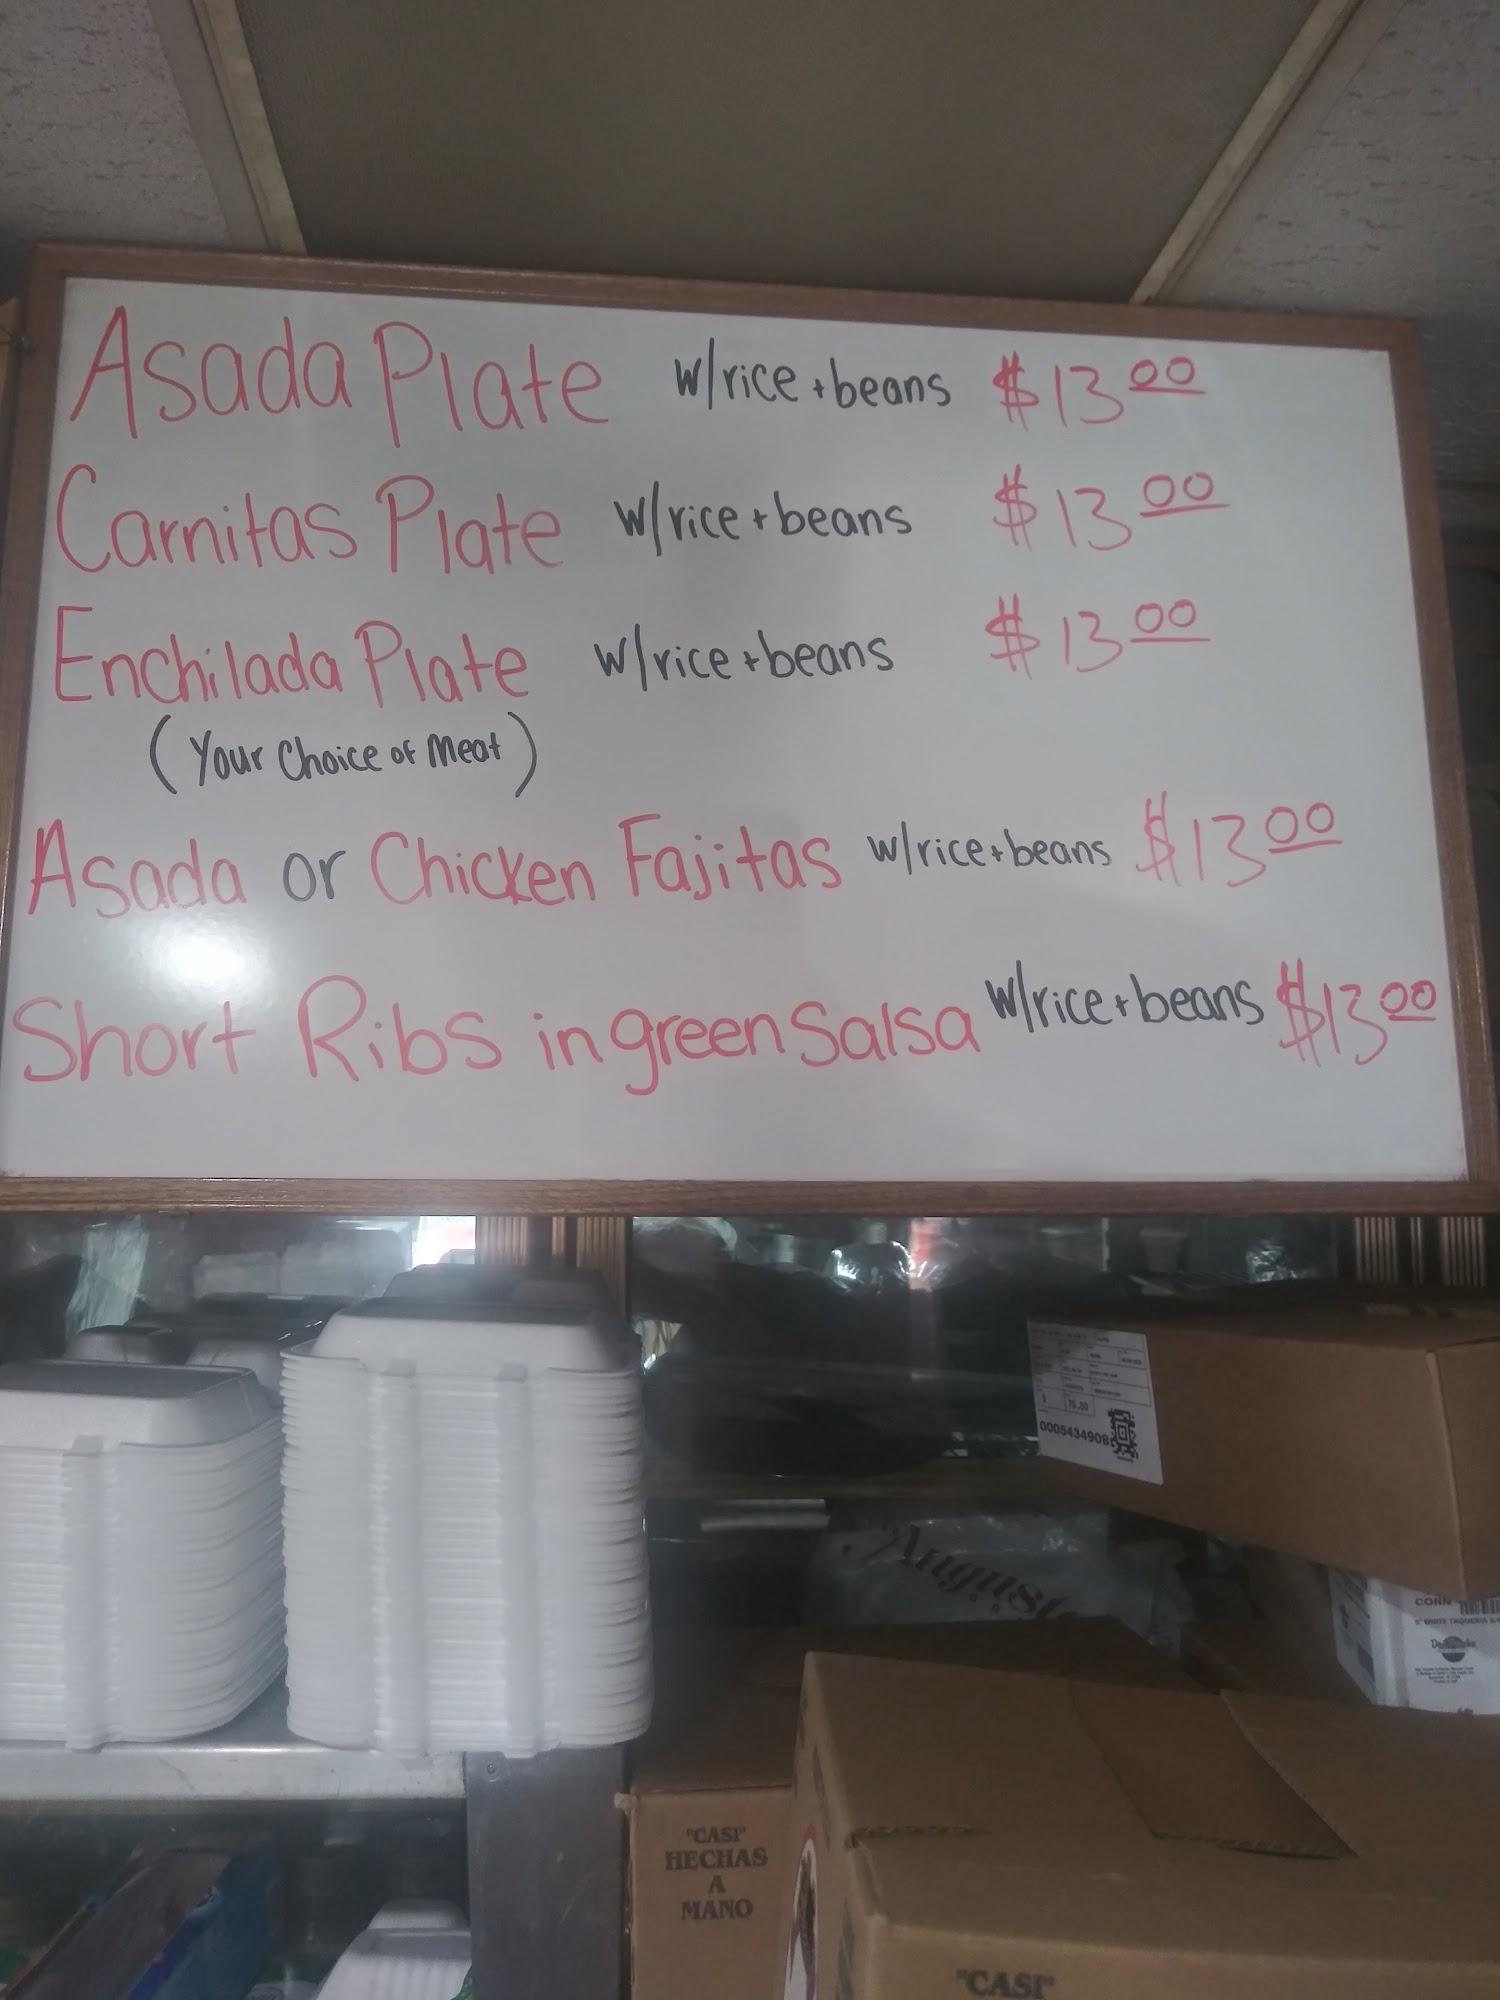 Asada Plate w/rice + beans $13.00
Carnitas Plate w/rice + beans $13.00
Enchilada Plate w/rice + beans $13.00
(Your Choice of Meat)
Asada or Chicken Fajitas w/rice + beans $13.00
Short Ribs in green Salsa w/rice + beans $13.00
0005434908
CORN
"CASI"
HECHAS
A
MANO
"CASI"